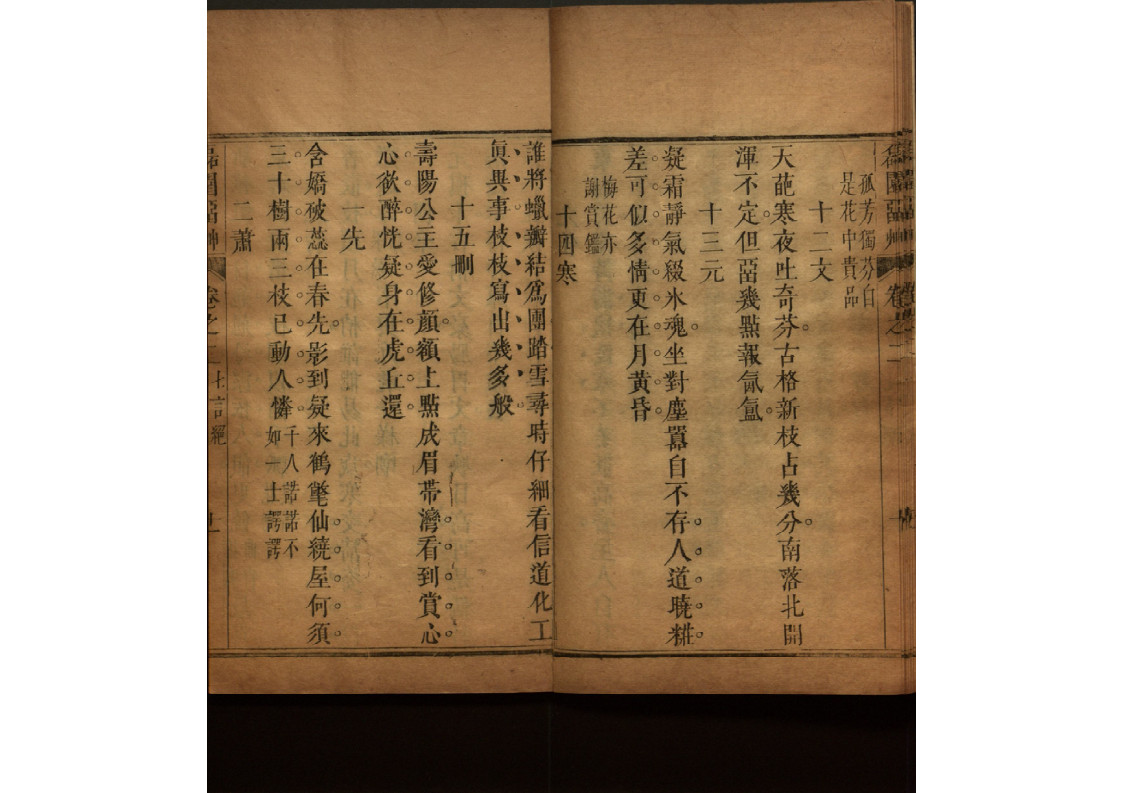 孤芳獨芬自
是花中貴品
十二文
天葩寒夜吐奇芬古格新枝占幾分南落北開
渾不定但畱幾點報氤氳
十三元
凝霜靜氣綴氷魂坐對塵囂自不存人道暁糚
差可似多情更在月黄昏
梅花亦
謝賞鑑
十四寒
誰將蠟瓣結爲團踏雪尋時仔細看信道化工
眞異事枝枝寫出幾多般
十五刪
壽陽公主愛修顔額上點成眉帯灣看到賞心
心欲醉恍疑身在虎丘還
一先
含嬌破蕊在春先影到疑來鶴氅仙繞屋何須
三十樹兩三枝已動人憐
千人諾諾不
如一士諤諤
二蕭
卷之二 七言絕